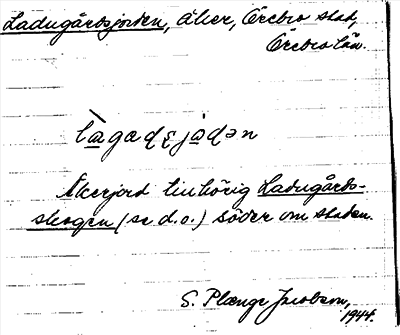 Ladugårdsjorden, åker, Örebro stad,
Örebro län.
Åkerjord tillhörig Ladugårds-
skogen (se d.o.) söder om staden.
S. Plænge Jacobson,
1944.